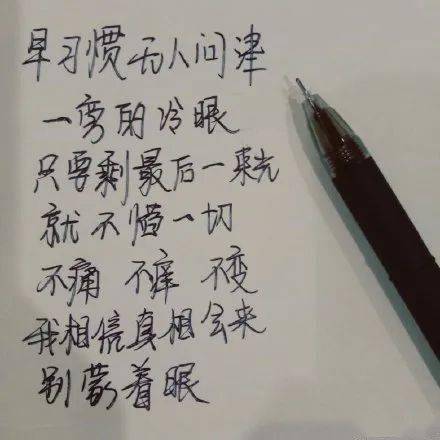 早习惯无人问津
一旁的冷眼
只要剩最后一束光
就不惜一切
不痛 不痒 不变
我相信真相会来
别蒙着眼